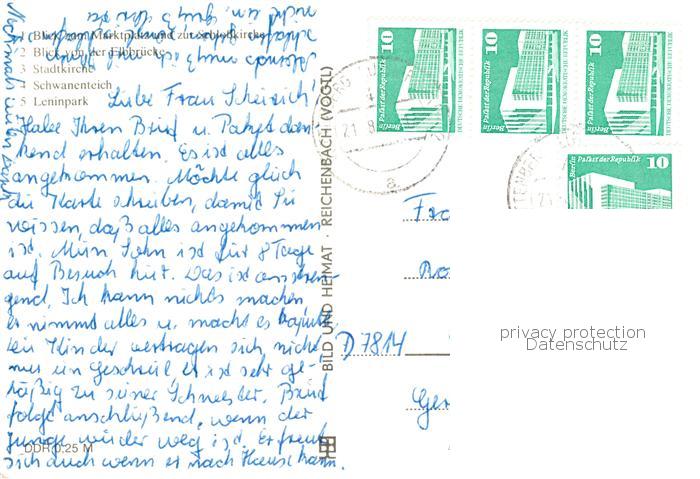 1 Blick zum Marktplatz und zur Schloßkirche
2 Blick von der Elbbrücke
3 Stadtkirche
4 Schwanenteich
5 Leninpark
Liebe Frau
Habe Ihren Brief u. Paket dan-
kend erhalten. Es ist alles
angekommen. Möchte gleich
die Karte schreiben, damit Sie
wissen, daß alles angekommen
ist. Mein Sohn ist für 8 Tage
auf Besuch hier. Das ist anstren-
gend. Ich kann nichts machen
er nimmt alles u. macht es kaputt.
Die Kinder vertragen sich nicht
nur ein Geschrei er ist sehr ge-
häßig zu seiner Schwester. Brief
folgt anschließend, wenn der
Junge wieder weg ist. Er freut
sich auch wenn er nach Hause kann.
DDR 0.25 M
BILD UND HEIMAT · REICHENBACH (VOGTL)
10
Palast der Republik
Berlin
DEUTSCHE DEMOKRATISCHE REPUBLIK
10
Palast der Republik
Berlin
DEUTSCHE DEMOKRATISCHE REPUBLIK
10
Palast der Republik
Berlin
DEUTSCHE DEMOKRATISCHE REPUBLIK
10
Palast der Republik
Berlin
a
Fra
D 7814
Ger
privacy protection
Datenschutz